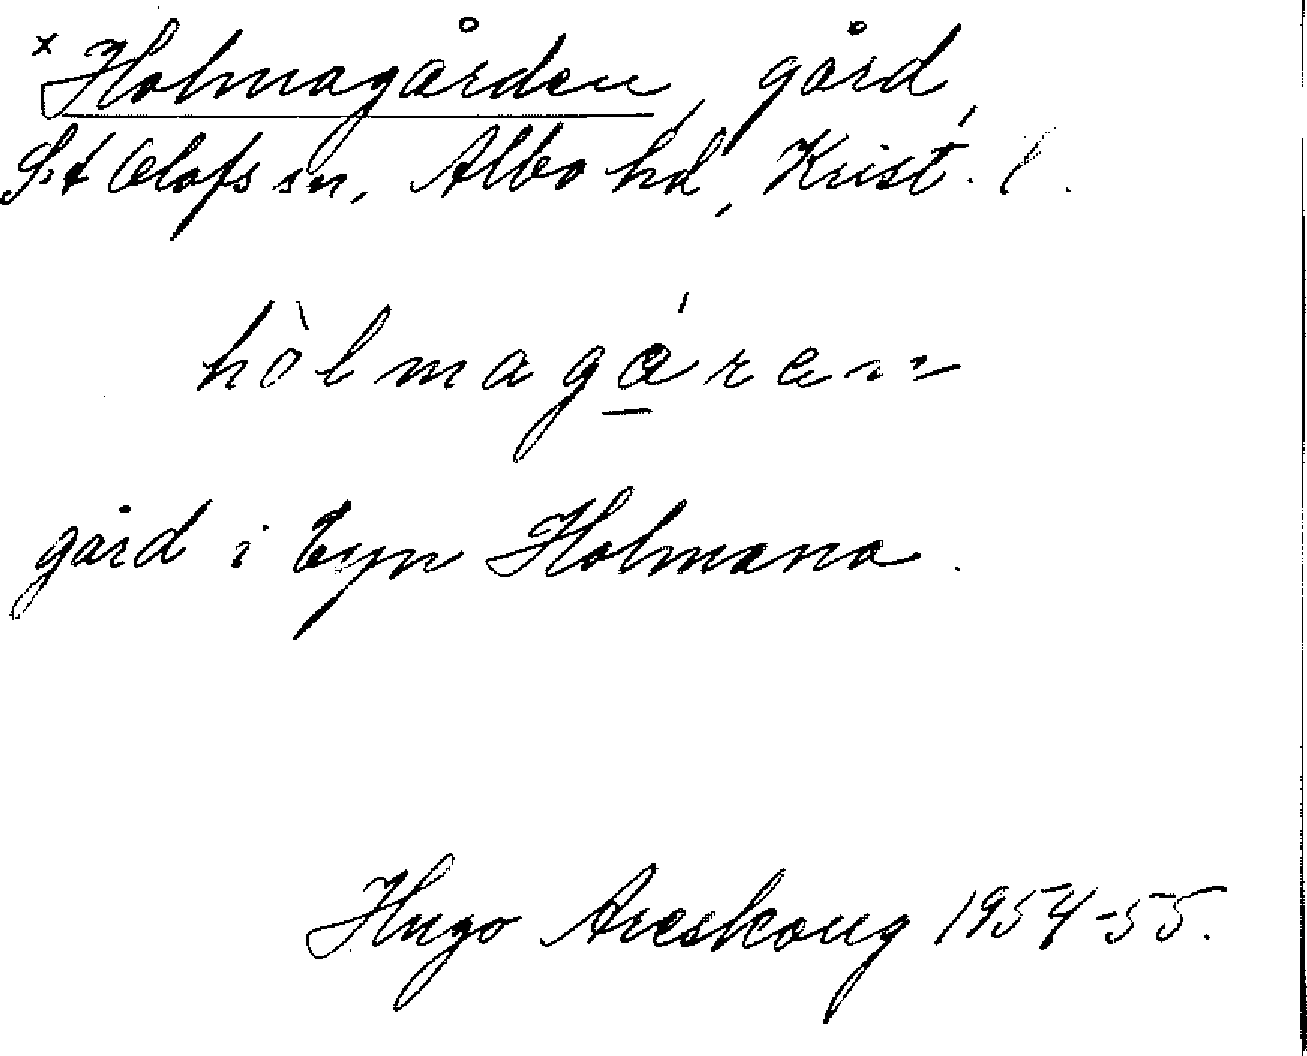 x Holmagården, gård,
S:t Olofs sn, Albo hd, Krist. l.
hòlmagáren
gård i byn Holmana.
Hugo Areskoug 1954-55.